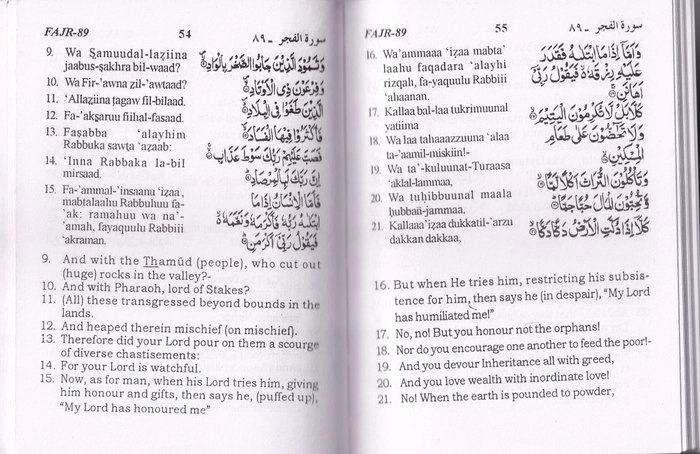 FAJR-89 54 سورة الفجر ـ ٨٩
9. Wa Samuudal-laziina
jaabus-sakhra bil-waad?
10. Wa Fir-'awna zil-'awtaad?
11. 'Allaziina tagaw fil-bilaad.
12. Fa-'aksaruu fiihal-fasaad.
13. Fasabba 'alayhim
Rabbuka sawta 'azaab:
14. 'Inna Rabbaka la-bil
mirsaad.
15. Fa-'ammal-'insaanu 'izaa,
mabtalaahu Rabbuhuu fa-
'ak: ramahuu wa na'-
'amah, fayaquulu Rabbiii
'akraman.
وَثَمُودَ الَّذِينَ جَابُوا الصَّخْرَ بِالْوَادِ
وَفِرْعَوْنَ ذِي الْأَوْتَادِ
الَّذِينَ طَغَوْا فِي الْبِلَادِ
فَأَكْثَرُوا فِيهَا الْفَسَادَ
فَصَبَّ عَلَيْهِمْ رَبُّكَ سَوْطَ عَذَابٍ
إِنَّ رَبَّكَ لَبِالْمِرْصَادِ
فَأَمَّا الْإِنْسَانُ إِذَا مَا
ابْتَلَاهُ رَبُّهُ فَأَكْرَمَهُ وَنَعَّمَهُ
فَيَقُولُ رَبِّي أَكْرَمَنِ
9. And with the Thamûd (people), who cut out
(huge) rocks in the valley?-
10. And with Pharaoh, lord of Stakes?
11. (All) these transgressed beyond bounds in the
lands.
12. And heaped therein mischief (on mischief).
13. Therefore did your Lord pour on them a scourge
of diverse chastisements:
14. For your Lord is watchful.
15. Now, as for man, when his Lord tries him, giving
him honour and gifts, then says he, (puffed up),
"My Lord has honoured me"
FAJR-89 55 سورة الفجر ـ ٨٩
16. Wa'ammaaa 'izaa mabta'
laahu faqadara 'alayhi
rizqah, fa-yaquulu Rabbiii
'ahaanan.
17. Kallaa bal-laa tukrimuunal
yatiima
18. Wa laa tahaaazzuuna 'alaa
ta-'aamil-miskiin!-
19. Wa ta'-kuluunat-Turaasa
'aklal-lammaa,
20. Wa tuhibbuunal maala
hubban-jammaa,
21. Kallaaa'izaa dukkatil-'arzu
dakkan dakkaa,
وَأَمَّا إِذَا مَا ابْتَلَاهُ فَقَدَرَ
عَلَيْهِ رِزْقَهُ فَيَقُولُ رَبِّي
أَهَانَنِ
كَلَّا بَلْ لَا تُكْرِمُونَ الْيَتِيمَ
وَلَا تَحَاضُّونَ عَلَى طَعَامِ
الْمِسْكِينِ
وَتَأْكُلُونَ التُّرَاثَ أَكْلًا لَمًّا
وَتُحِبُّونَ الْمَالَ حُبًّا جَمًّا
كَلَّا إِذَا دُكَّتِ الْأَرْضُ دَكًّا دَكًّا
16. But when He tries him, restricting his subsis-
tence for him, then says he (in despair), "My Lord
has humiliated me!"
17. No, no! But you honour not the orphans!
18. Nor do you encourage one another to feed the poor!-
19. And you devour Inheritance all with greed,
20. And you love wealth with inordinate love!
21. No! When the earth is pounded to powder,